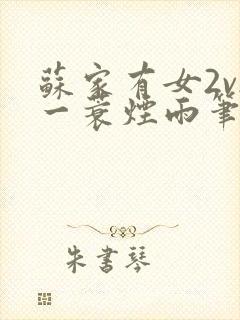 蘇家有女2v
一蓑煙雨筆
朱書琴